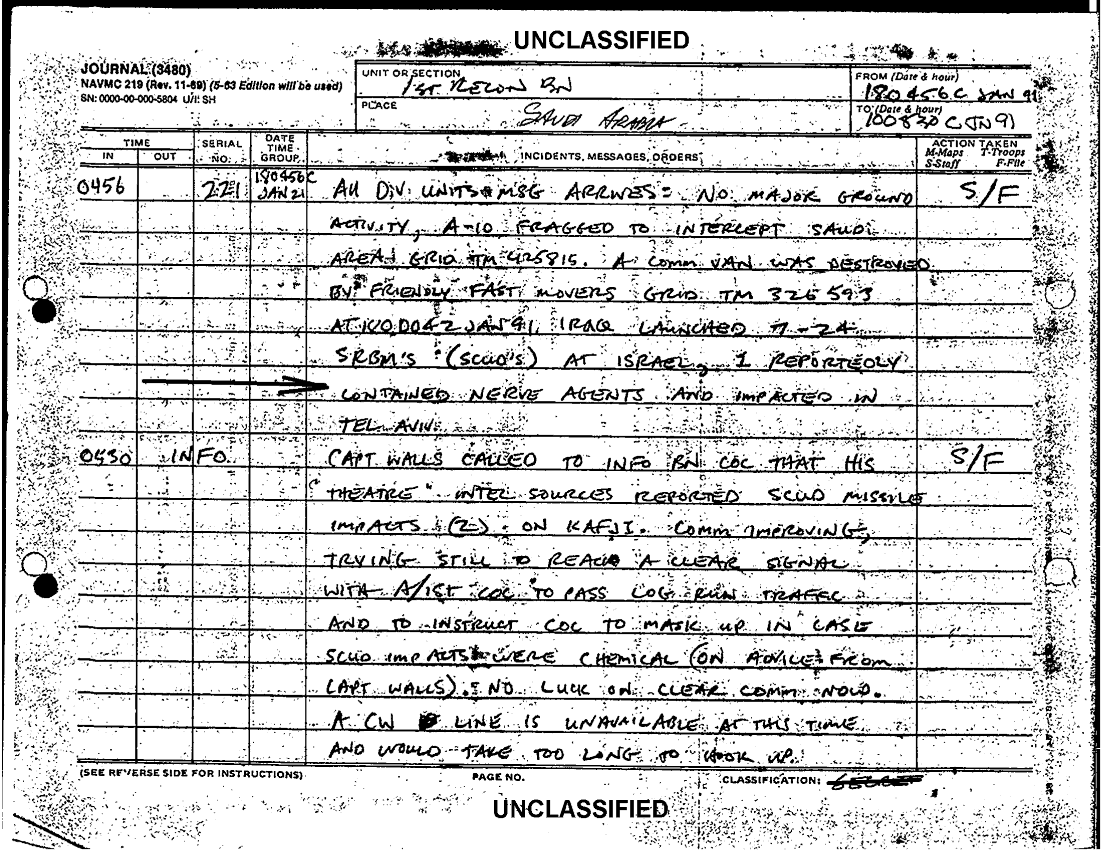 UNCLASSIFIED
JOURNAL (3480)
NAVMC 219 (Rev. 11-69) (5-63 Edition will be used)
SN: 0000-00-000-5804 U/I: SH
UNIT OR SECTION
1ST RECON BN
FROM (Date & hour)
180456C JAN 91
PLACE
SAUDI ARABIA
TO (Date & hour)
TIME
IN OUT
SERIAL NO.
DATE TIME GROUP
INCIDENTS, MESSAGES, ORDERS
ACTION TAKEN
M-Maps T-Troops
S-Staff F-File
0456 221 180456C JAN 21 All DIV. UNITS MSG ARRIVES: NO MAJOR GROUND S/F
ACTIVITY, A-10 FRAGGED TO INTERCEPT SAUDI
AREA GRID TM 425815. A COMM VAN WAS DESTROYED
BY FRIENDLY FAST MOVERS GRID TM 326593
AT JAN 91, IRAQ LAUNCHED 7-24
SRBM'S (SCUD'S) AT ISRAEL, 1 REPORTEDLY
CONTAINED NERVE AGENTS AND IMPACTED IN
TEL AVIV.
0530 INFO. CAPT WALLS CALLED TO INFO BN COC THAT HIS S/F
"THEATRE" INTEL SOURCES REPORTED SCUD MISSILE
IMPACTS (2) ON KAFJI. COMM IMPROVING,
TRYING STILL TO REACH A CLEAR SIGNAL
WITH A/1ST COC TO PASS LOG RUN TRAFFIC
AND TO INSTRUCT COC TO MASK UP IN CASE
SCUD IMPACTS WERE CHEMICAL (ON ADVICE FROM
CAPT WALLS). NO LUCK ON CLEAR COMM NOW.
A CW LINE IS UNAVAILABLE AT THIS TIME
AND WOULD TAKE TOO LONG TO HOOK UP.
(SEE REVERSE SIDE FOR INSTRUCTIONS)
PAGE NO.
CLASSIFICATION: SECRET
UNCLASSIFIED